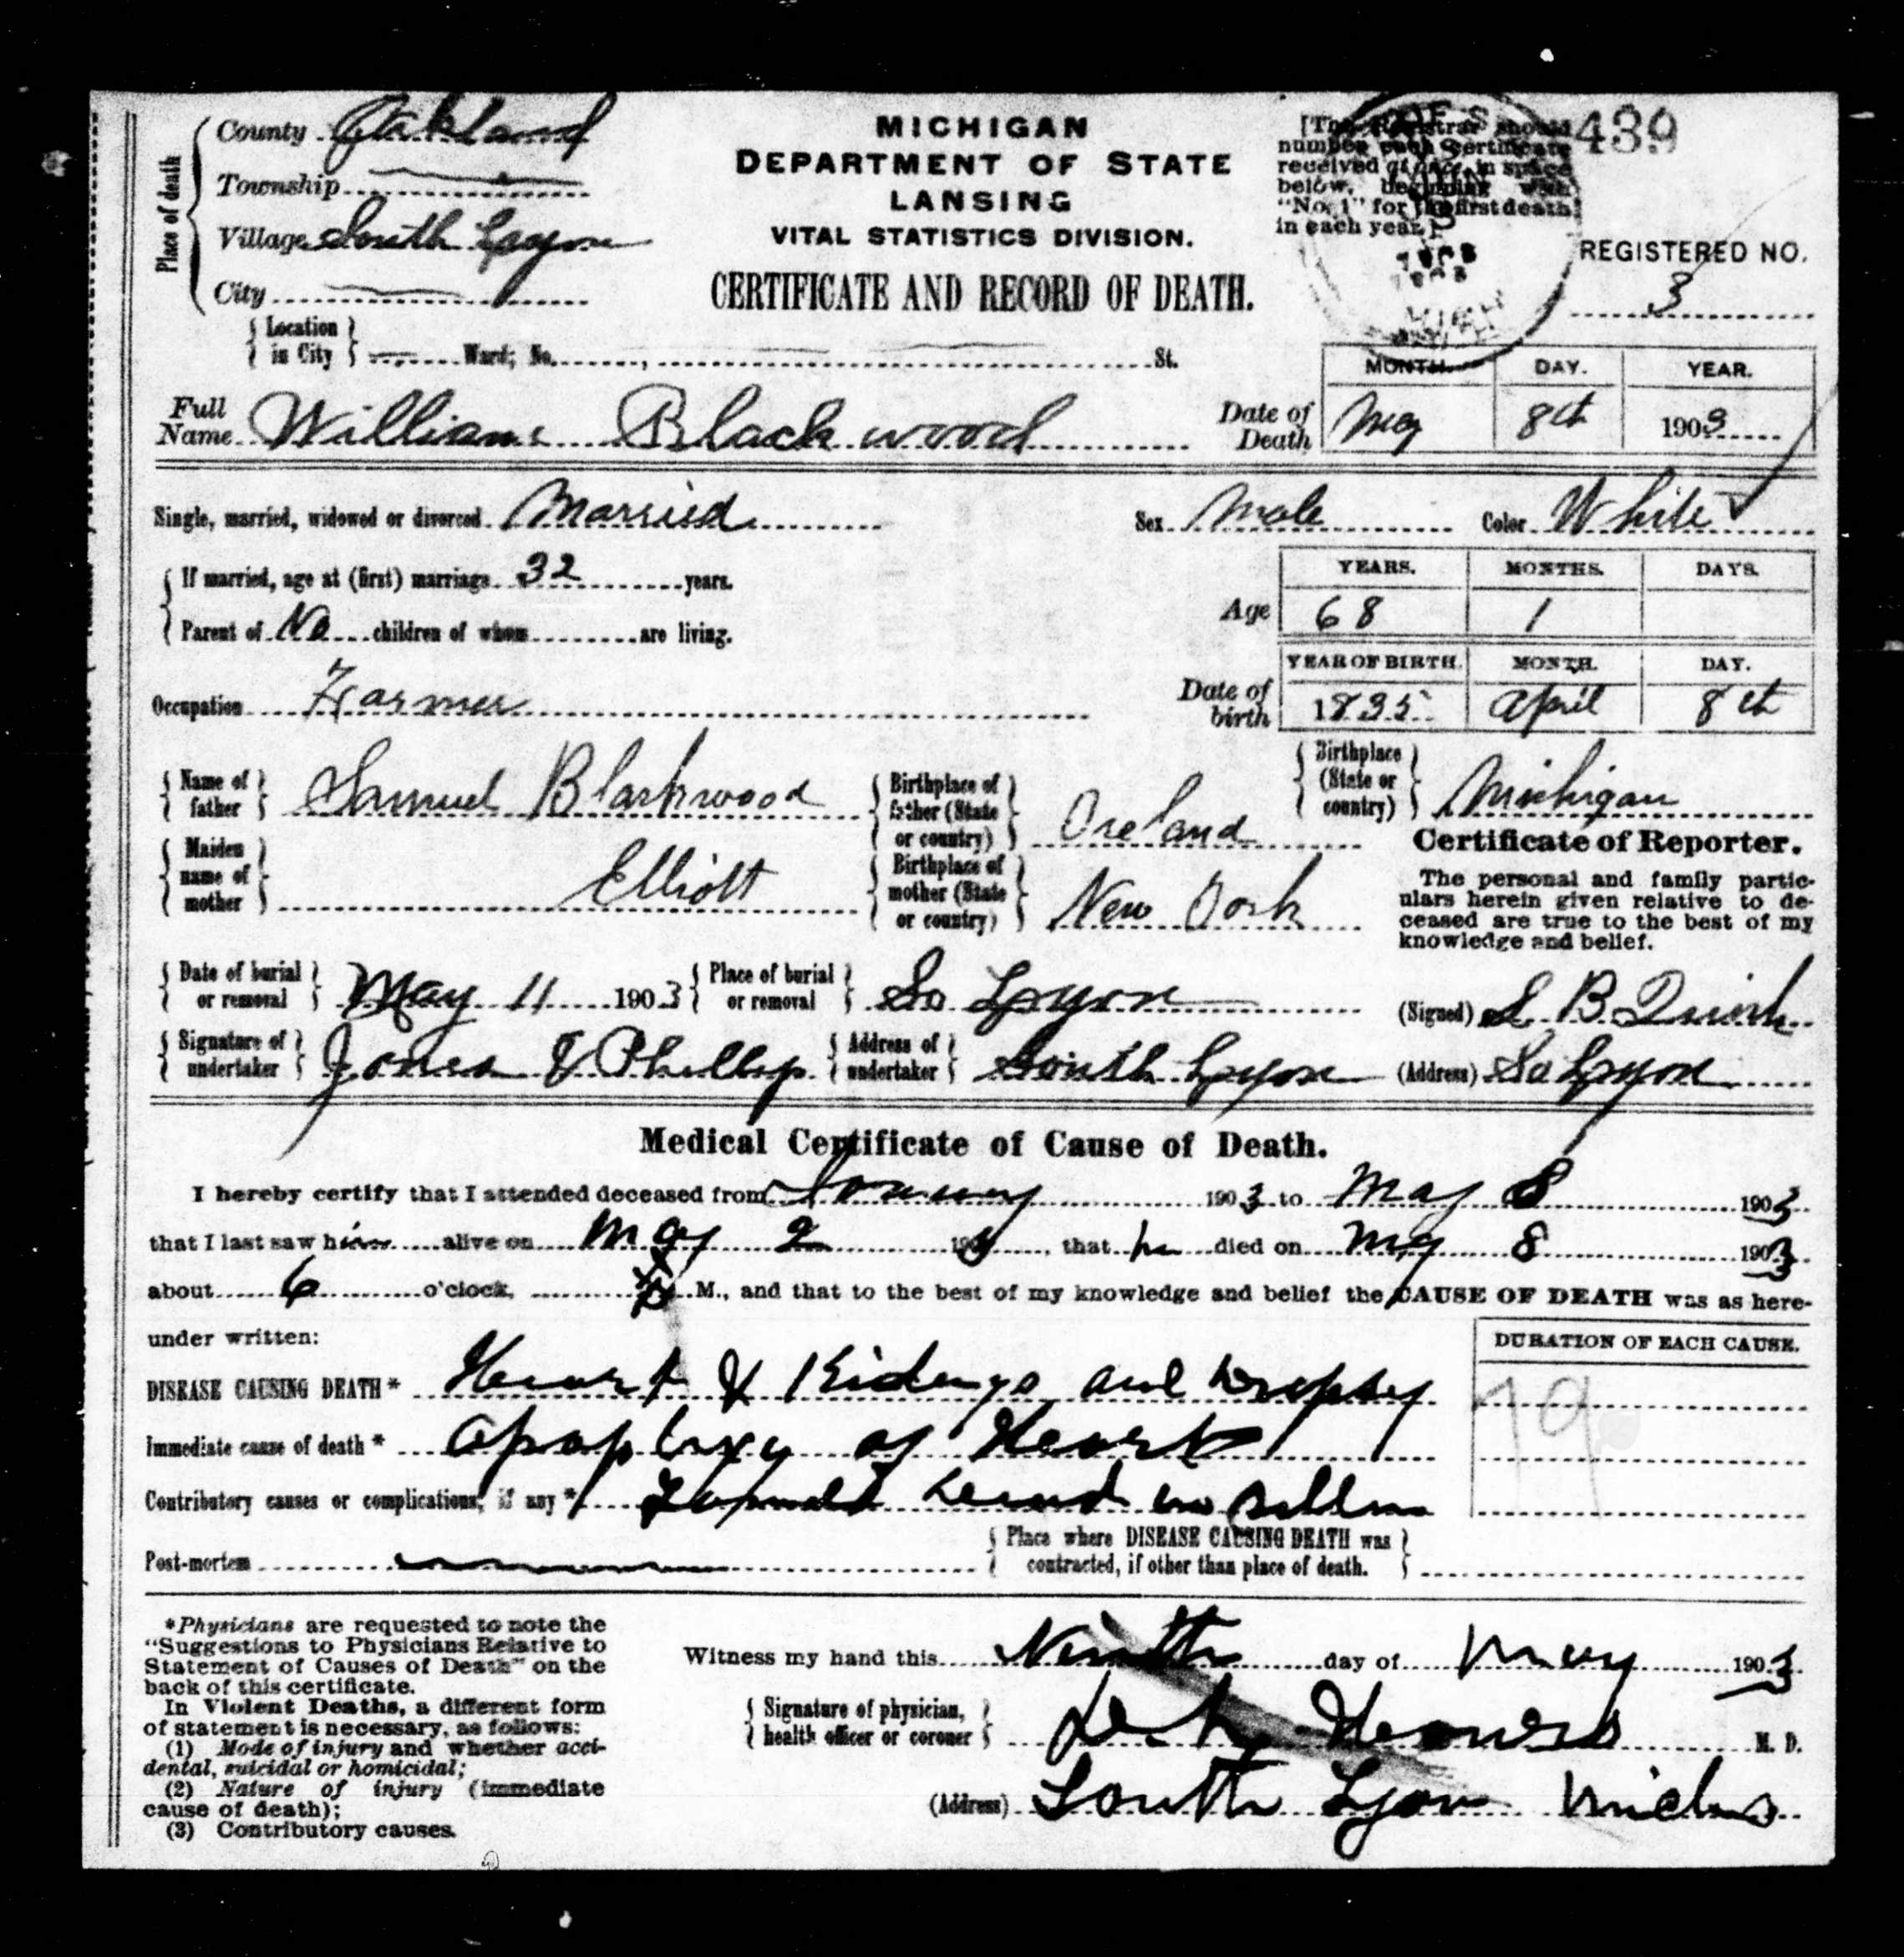 County Oakland
Township
Village South Lyon
City
Place of death
MICHIGAN
DEPARTMENT OF STATE
LANSING
VITAL STATISTICS DIVISION.
CERTIFICATE AND RECORD OF DEATH.
[The Registrar should
number each certificate
received at once, in space
below, beginning with
"No. 1" for the first death
in each year.]
439
REGISTERED NO.
3
Location in City Ward; No. , St.
Full Name William Blackwood
Date of Death
MONTH. DAY. YEAR.
May 8th 1903
Single, married, widowed or divorced Married Sex Male Color White
If married, age at (first) marriage 32 years.
Parent of No children of whom are living.
Age
YEARS. MONTHS. DAYS.
68 1
Occupation Farmer
Date of birth
YEAR OF BIRTH. MONTH. DAY.
1835 April 8th
Name of father Samuel Blackwood
Birthplace of father (State or country) Ireland
Birthplace (State or country) Michigan
Maiden name of mother Elliott
Birthplace of mother (State or country) New York
Certificate of Reporter.
The personal and family partic-
ulars herein given relative to de-
ceased are true to the best of my
knowledge and belief.
Date of burial or removal May 11 1903 Place of burial or removal So Lyon
(Signed) B.
Signature of undertaker Jones & Phillips Address of undertaker South Lyon
(Address) So Lyon
Medical Certificate of Cause of Death.
I hereby certify that I attended deceased from 1903 to May 8 1903
that I last saw him alive on May 2 1903, that he died on May 8 1903
about 6 o'clock, M., and that to the best of my knowledge and belief the CAUSE OF DEATH was as here-
under written:
DURATION OF EACH CAUSE.
DISEASE CAUSING DEATH* Heart & Kidneys and Dropsy
79
Immediate cause of death* apoplexy of Heart
Contributory causes or complications, if any*
Post-mortem
Place where DISEASE CAUSING DEATH was
contracted, if other than place of death.
*Physicians are requested to note the
"Suggestions to Physicians Relative to
Statement of Causes of Death" on the
back of this certificate.
In Violent Deaths, a different form
of statement is necessary, as follows:
(1) Mode of injury and whether acci-
dental, suicidal or homicidal;
(2) Nature of injury (immediate
cause of death);
(3) Contributory causes.
Witness my hand this Ninth day of May 1903
Signature of physician, health officer or coroner M. D.
(Address) South Lyon Mich